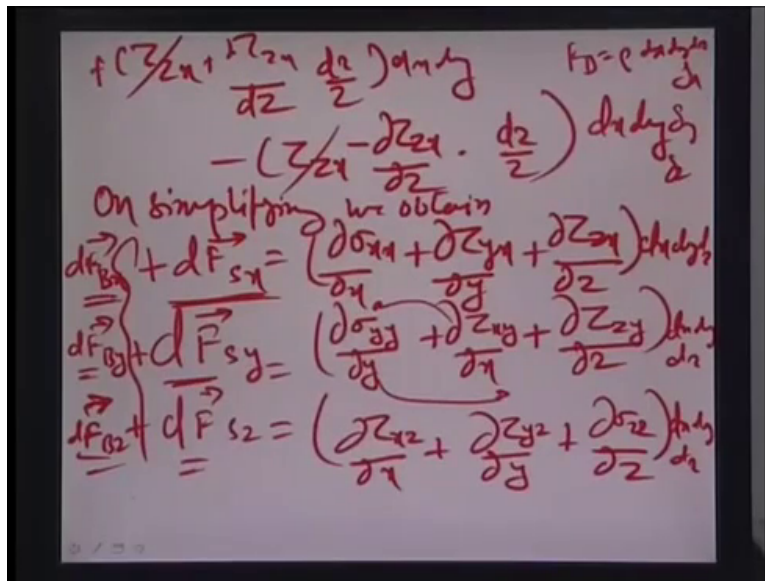 + (τ/zx + ∂τzx/dz dz/2) dx dy
FD = ρ dx dy dz
- (τ/zx - ∂τzx/∂z · dz/2) dx dy
On simplifying we obtain
dFBx + dFSx = (∂σxx/∂x + ∂τyx/∂y + ∂τzx/∂z) dx dy dz
dFBy + dFSy = (∂σyy/∂y + ∂τxy/∂x + ∂τzy/∂z) dx dy dz
dFBz + dFSz = (∂τxz/∂x + ∂τyz/∂y + ∂σzz/∂z) dx dy dz